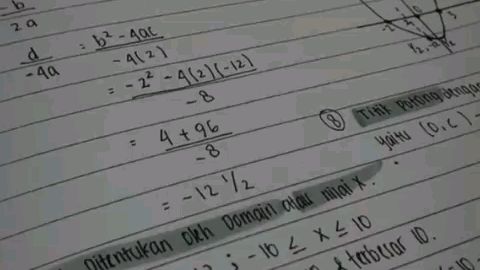 -b
2a
d / -4a = b² - 4ac / -4(2)
= -2² - 4(2)(-12) / -8
= 4 + 96 / -8
= -12 1/2
⑧ Titik Potong dengan
yaitu (0, c)
Ditentukan oleh Domain atau nilai x.
; -10 ≤ x ≤ 10
terbesar 10.